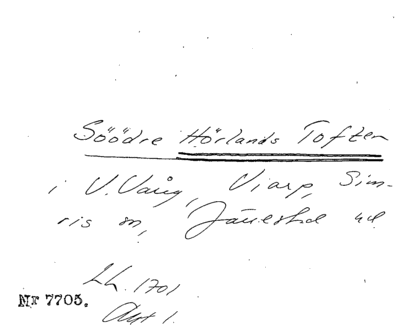 Söödre Hörlands Toften
i V. Vång, Viarp, Sim-
ris sn, Järrestad hd.
Lh. 1701
Akt 1.
Nr 7705.